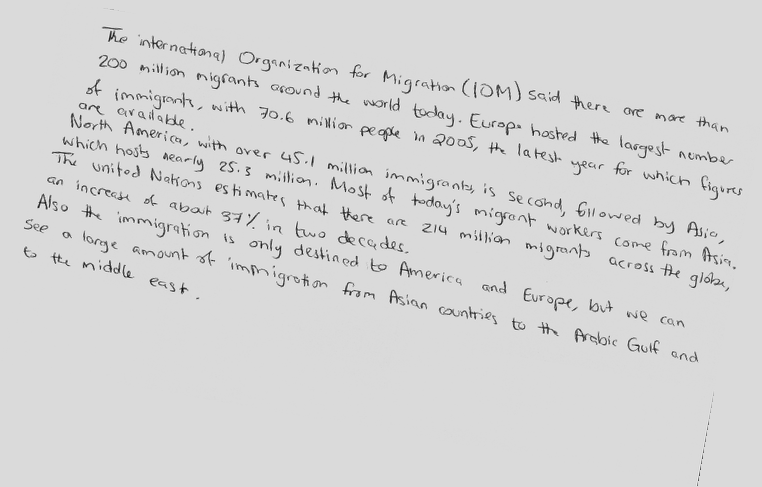 The international Organization for Migration (IOM) said there are more than
200 million migrants around the world today. Europe hosted the largest number
of immigrants, with 70.6 million people in 2005, the latest year for which figures
are available.
North America, with over 45.1 million immigrants, is second, followed by Asia,
which hosts nearly 25.3 million. Most of today's migrant workers come from Asia.
The united Nations estimates that there are 214 million migrants across the globe,
an increase of about 37% in two decades.
Also the immigration is only destined to America and Europe, but we can
see a large amount of immigration from Asian countries to the Arabic Gulf and
to the middle east.